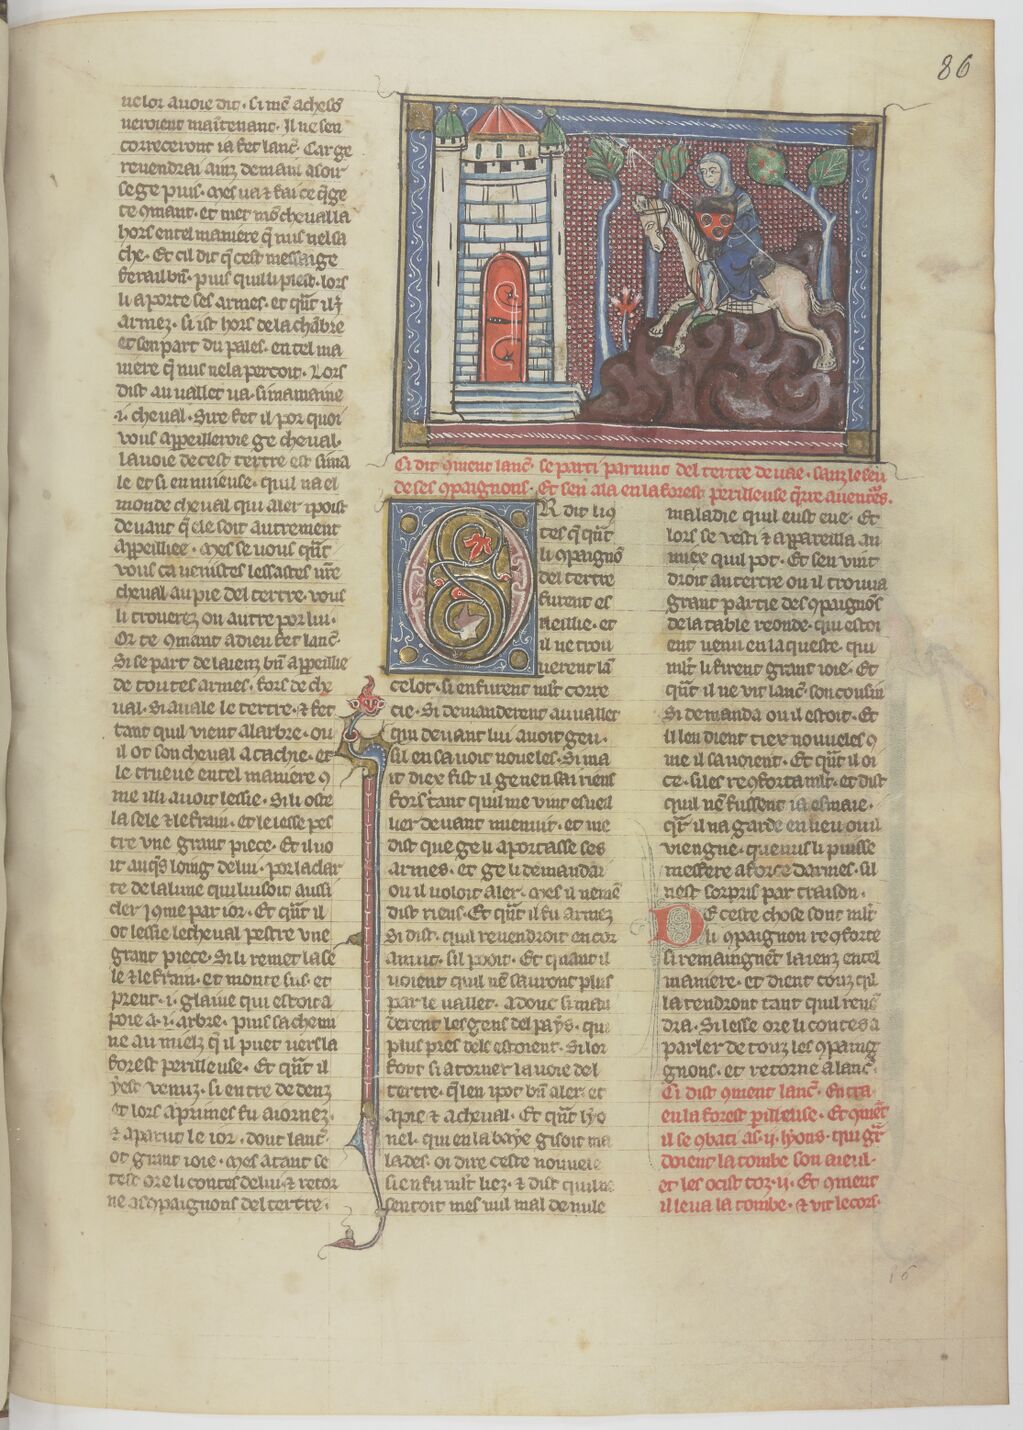 86
ne lor auoie dit. si mē achesō
neroient maītenant. Il ne sen
correceront ia fet lanc̄. Car ge
reuendrai ainz demain asoir
se ge puis. Mes ua ⁊ fai ce q̄ ge
te ꝯmant. et met mō cheual la
hors en tel maniere q̄ nus nel sa
che. Et cil dit q̄ cest message
fera il bn̄. puis quil li plest. lors
li aporte ses armes. et qn̄t il ē
armez. si ist hors de la chābre
et sen part du pales. en tel ma
niere q̄ nus ne la percoit. Lors
dist au uallet ua. si mamaine
.i. cheual. Sire fet il por quoi
vous appeilleroie ge cheual.
la uoie de cest tertre est si ma
le et si ennuieuse. quil na el
monde cheual qui aler i poist
deuant q̄ ele soit autrement
appeilliee. Mes se uous qn̄t
vous ca uenistes lessastes ur̄e
cheual au pie del tertre. vous
li trouerez ou autre por lui.
Or te ꝯmant a dieu fet lanc̄.
Si se part de laienz bn̄ appeillie
de toutes armes. fors de che
ual. Si auale le tertre. ⁊ fet
tant quil uient a larbre. ou
il ot son cheual atachie. et
le trueue en tel maniere ꝯ
me il li auoit lessie. Si li oste
la sele ⁊ le frain. et le lesse pes
tre vne grant piece. Et il uo
it auq̄s loing de lui. por la clar
te de la lune qui luisoit aussi
cler ꝯme par ior. Et qn̄t il
ot lessie le cheual pestre vne
grant piece. Si li remet la se
le ⁊ le frain. et monte sus. et
prent .i. glaiue qui estoit a
poie a .i. arbre. puis sachemi
ne au mielz q̄ il puet uers la
forest perilleuse. Et qn̄t il
y est venuz. si entre dedenz
et lors aprimes fu aiornez.
⁊ aparut le ior. dont lanc̄.
ot grant ioie. Mes atant se
test ore li contes de lui. ⁊ retor
ne as ꝯpaignons del tertre.
Ci dit ꝯment lanc̄. se parti par nuit del tertre deuee. sanz le seu
de ses ꝯpaignons. Et sen ala en la forest perilleuse q̄rre auentes.
OR dit li ꝯ
tes q̄ qn̄t
li ꝯpaignō
del tertre
furent es
ueillie. et
il ne trou
uerent lā
celot. si en furent ml̄t corre
cie. Si demanderent au uallet
qui deuant lui auoit geu.
sil en sauoit noueles. Si ma
it diex fist il ge nen sai riens
fors tant quil me vint esueil
lier deuant mienuit. et me
dist que ge li aportasse ses
armes. et ge li demandai
ou il uoloit aler. Mes il ne mē
dist riens. Et qn̄t il fu armez
Si dist. quil reuendroit encor
anuit. sil pooit. Et quant il
uoient quil nē sauront plus
par le uallet. adonc si man
derent les gens del pays. qui
plus pres dels estoient. Si lor
font si atorner la uoie del
tertre. q̄ len i pot bn̄ aler. et
a pie ⁊ a cheual. Et qn̄t lyo
nel. qui en la baye gisoit ma
lades. oi dire ceste nouuele
si en fu ml̄t liez. ⁊ dist quil ne
sentoit mes nul mal de nule
maladie quil eust eue. Et
lors se vesti ⁊ appareilla au
miex quil pot. Et sen vint
droit au tertre ou il trouua
grant partie des ꝯpaignōs
de la table reonde. qui estoi
ent uenu en la queste. qui
ml̄t li firent grant ioie. Et
qn̄t il ne vit lanc̄. son cousin
Si demanda ou il estoit. Et
li leu dient tiex nouueles ꝯ
me il sauoient. Et qn̄t il oi
ce. si les reꝯforta ml̄t. et dist
quil nē fussent ia esmaie.
q̄r il na garde en lieu ou il
viengne. que nus li puisse
mesfere a force darmes. sil
nest sorpris par traison.
DE ceste chose sont ml̄t
li ꝯpaignon reꝯforte
si remaingnēt laienz en tel
maniere. et dient touz q̄l
latendront tant quil reuē
dra. Si lesse ore li contes a
parler de touz les ꝯpaing
gnons. et retorne a lanc̄.
Ci dist ꝯment lanc̄. entra
en la forest perilleuse. Et ꝯmēt
il se ꝯbati as .ij. lyons. qui gar
doient la tombe son aieul.
et les ocist toz .ij. Et ꝯment
il leua la tombe. ⁊ vit le cors.
16